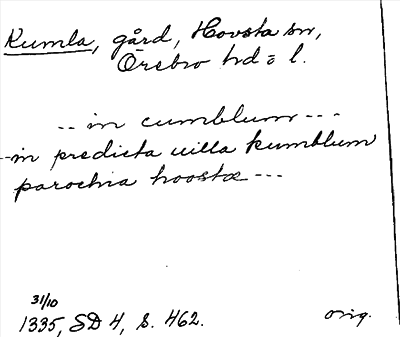 Kumla, gård, Hovsta sn,
Örebro hd o l.
-- in cumblum ---
-in predicta uilla kumblum
parochia hoosta ---
31/10
1335, SD 4, s. 462. orig.